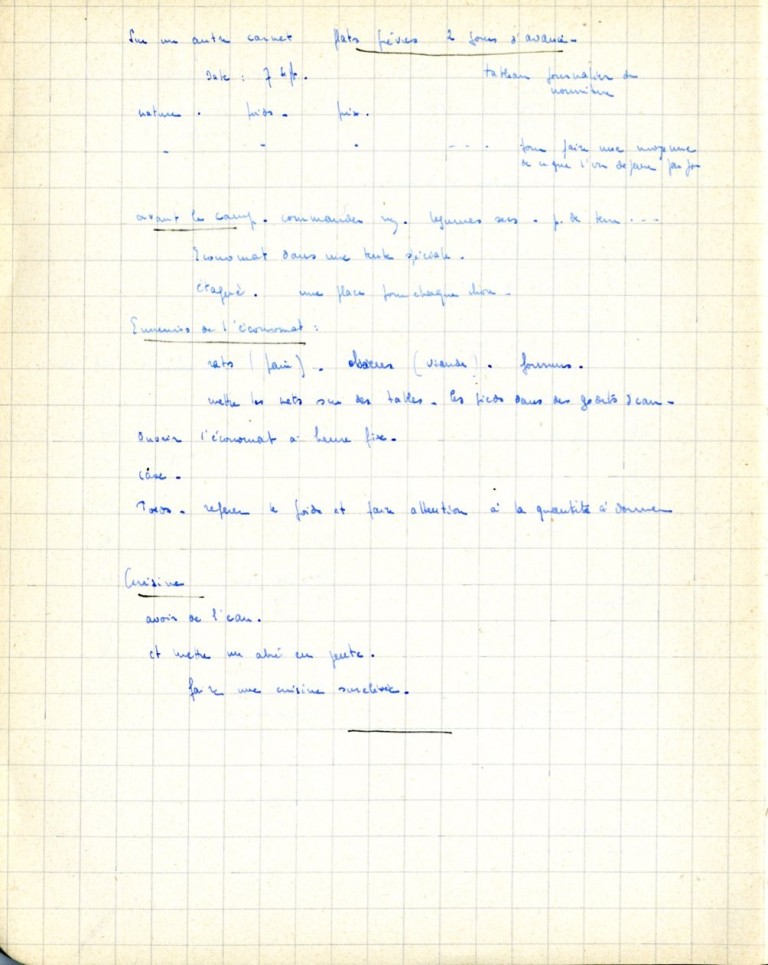 Sur un autre carnet plats prévus 2 jours d'avance.
Date : 7
tableau journalier de
nourriture
nature . poids . prix .
- - . - - . pour faire une moyenne
de ce que l'on dépense par jour
avant le camp . commander légumes secs . p. de terre . . .
Economat dans une tente spéciale .
étagère . une place pour chaque chose .
Ennemis de l'économat :
rats (pain) . (viande) . fourmis .
mettre les mets sur des tables . les pieds dans des godets d'eau .
Ouvrir l'économat à heure fixe .
Poids . le poids et faire attention à la quantité à donner
Cuisine
avoir de l'eau .
et mettre un abri en pente .
faire une cuisine surélevée .